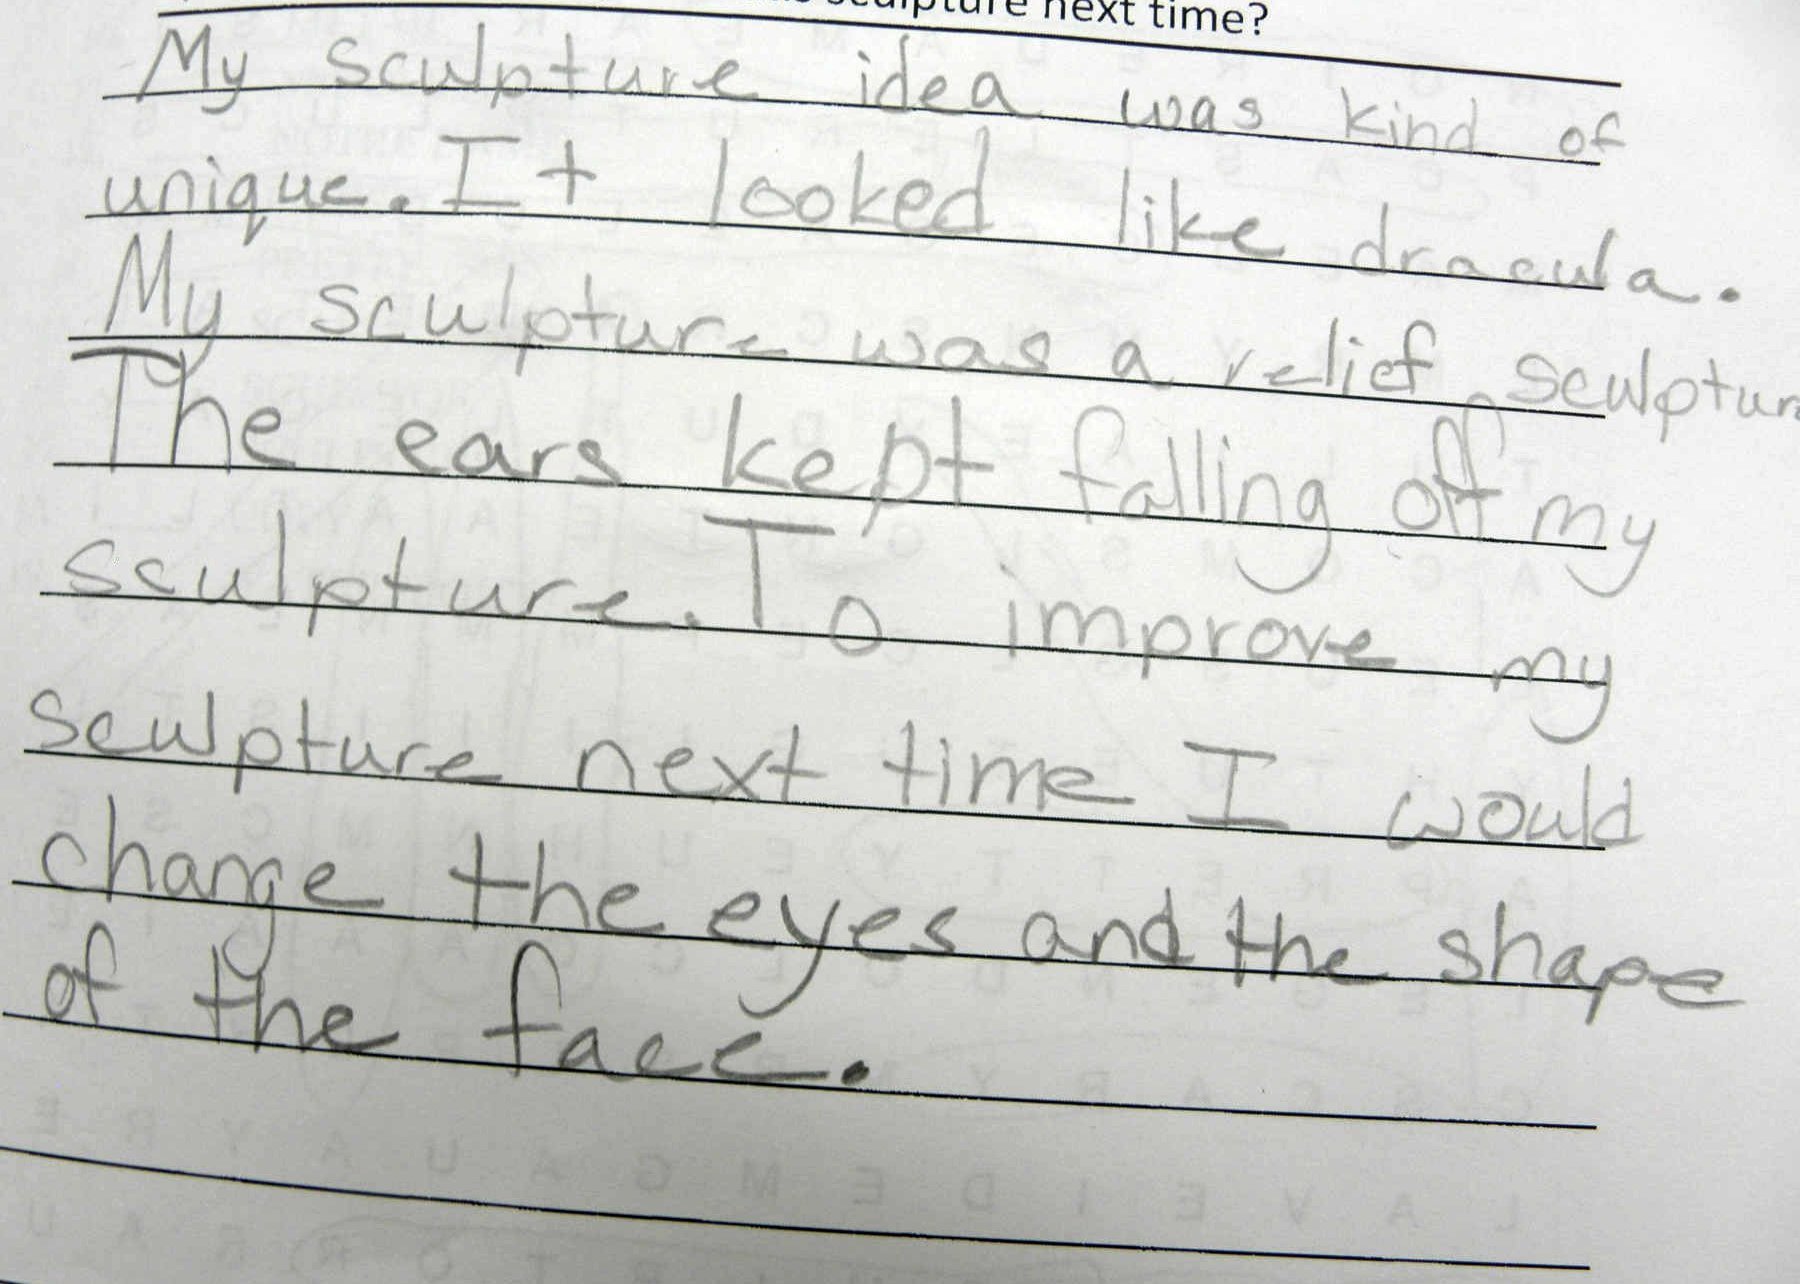 sculpture next time?
My sculpture idea was kind of
unique. It looked like dracula.
My sculpture was a relief sculpture
The ears kept falling off my
sculpture. To improve my
sculpture next time I would
change the eyes and the shape
of the face.